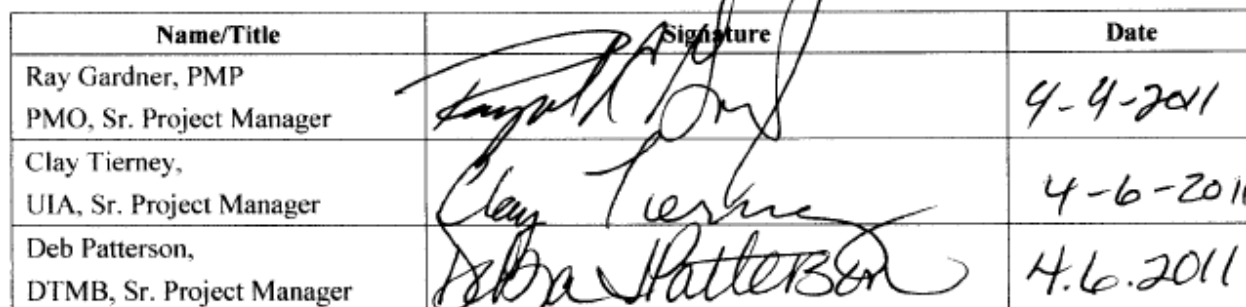 Name/Title Signature Date
Ray Gardner, PMP
PMO, Sr. Project Manager 4-4-2011
Clay Tierney,
UIA, Sr. Project Manager Clay Tierney 4-6-2011
Deb Patterson,
DTMB, Sr. Project Manager Debra Patterson 4.6.2011